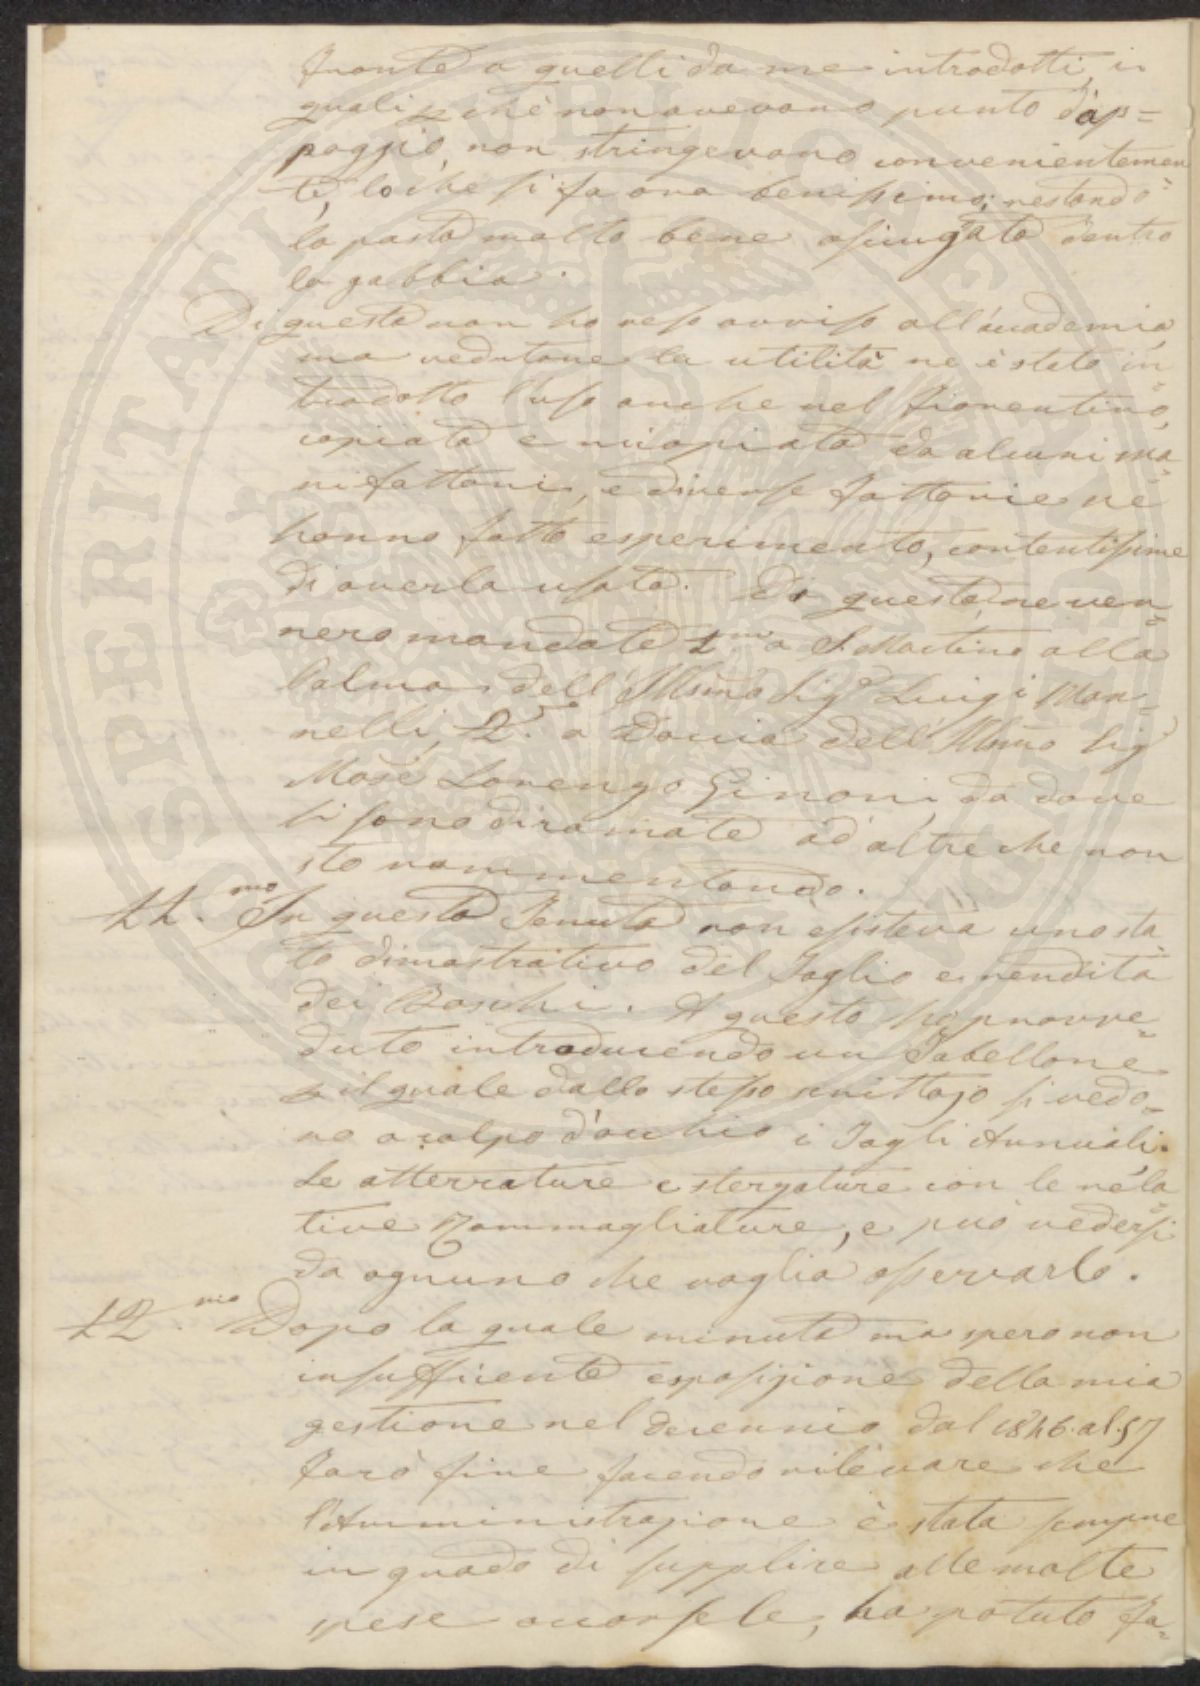 fronte a quelli da me introdotti, i
quali p chè non avevano punto d'ap=
poggio, non stringevano convenientemen
te, lo che si fa ora benissimo; restando
la pasta molto bene asciugata dentro
la gabbia.
Di questa non ho reso avviso all'accademia,
ma vedutane la utilità ne è stato in=
trodotto l'uso anche nel Fiorentino,
copiata e ricopiata da alcuni ma=
nifattori, e diverse fattorie ne
hanno fatto esperimento, contentissime
di averla usata. Di queste ne ven=
nero mandate 1.mo a S. Martino alla
Palma dell'Illmo Sig.r Luigi Man=
nelli, 2.o a Doccia dell'Illmo Sig.r
Mse Lorenzo Ginori, da dove
si sono diramate ad altre che non
sto rammentando.
11.mo In questa Tenuta non esisteva uno sta=
to dimostrativo del Taglio e rendita
dei Boschi. A questo ho provve=
duto introducendo un Tabellone
p il quale dallo stesso scrittojo si vedo=
no a colpo d'occhio i Tagli Annuali.
Le atterrature e sterzature con le rela=
tive Rammagliature, e può vedersi
da ognuno che voglia osservarlo.
12.mo Dopo la quale minuta ma spero non
insufficiente esposizione della mia
gestione nel decennio dal 1846. al 57
farò fine facendo rilevare che
l'Amministrazione è stata sempre
in grado di supplire alle molte
spese occorsele, ha potuto fa=